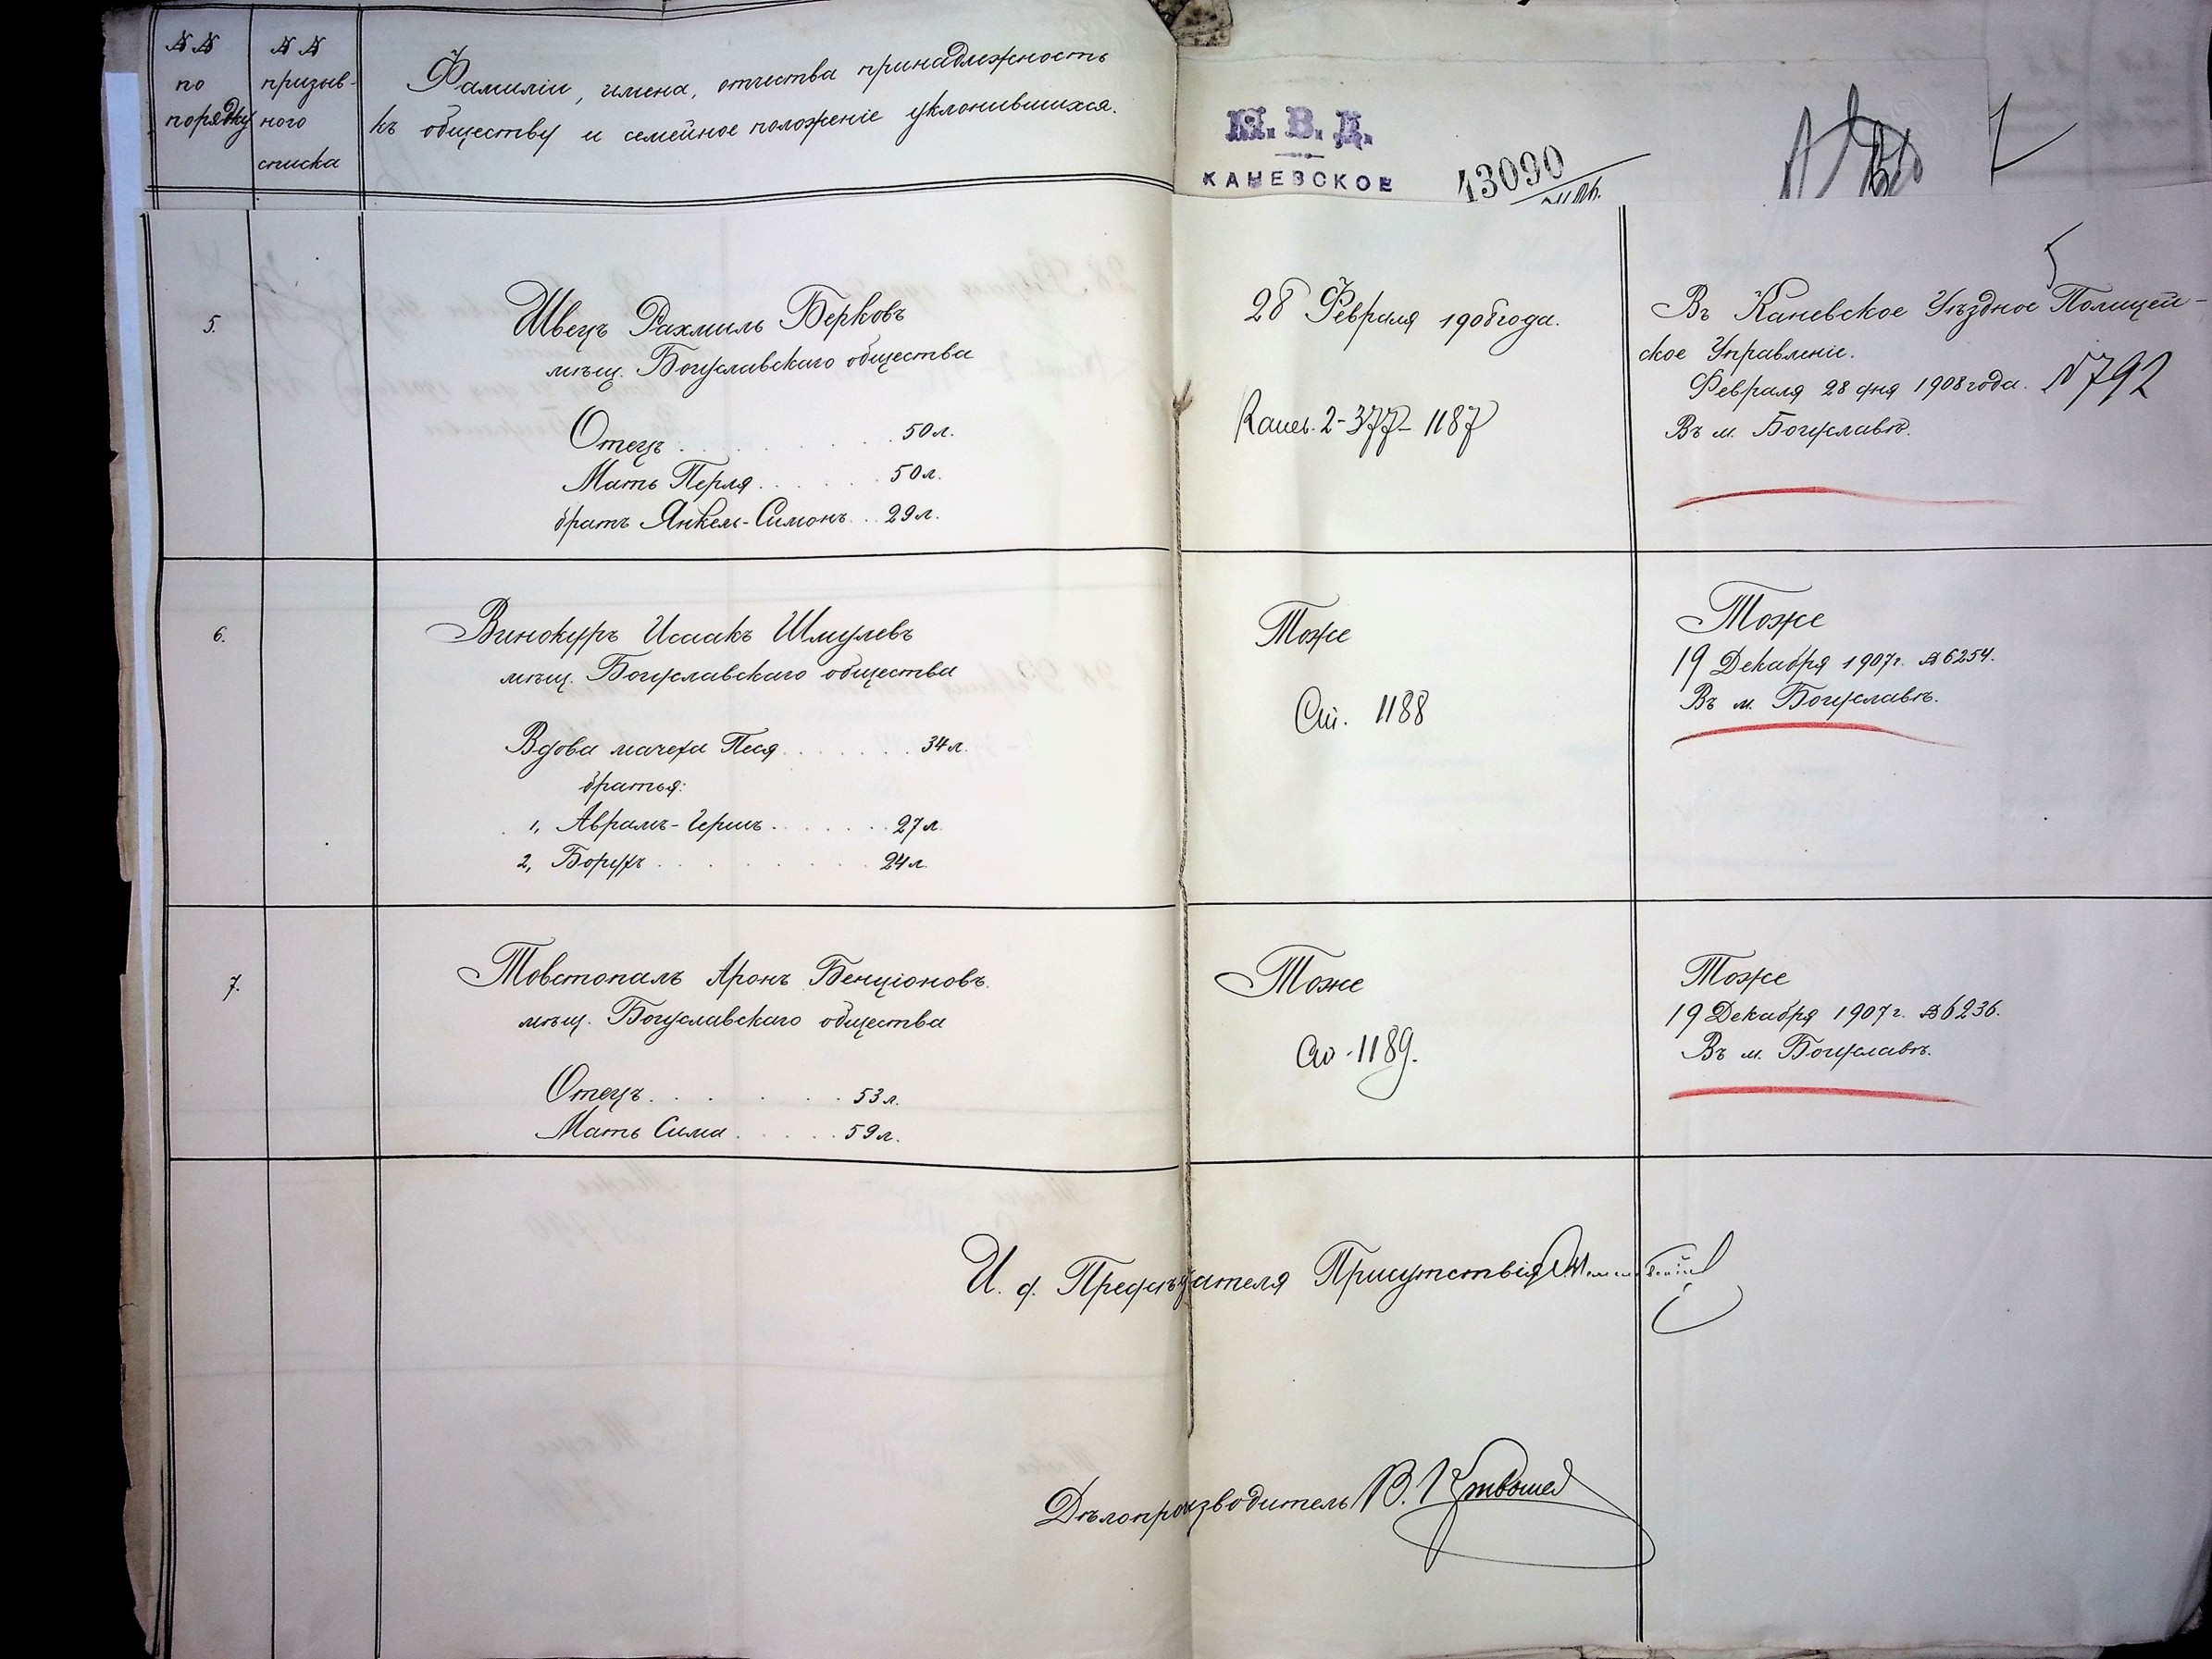 №№ по порядку
№№ призыв-
ного
списка
Фамиліи, имена, отчества принадлежность
къ обществу и семейное положеніе уклонившихся.
М. В. Д.
КАНЕВСКОЕ
13090
5.
Швецъ Рахмиль Берковъ
мѣщ. Богуславскаго общества
Отецъ . . . . 50 л.
Мать Перля . . . . . 50 л.
братъ Янкель-Симонъ . . 29 л.
28 Февраля 1908 года.
Канев. 2-377-1187
Въ Каневское Уѣздное Полицей-
ское Управленіе.
Февраля 28 дня 1908 года. №792
Въ м. Богуславѣ.
6.
Винокуръ Исаакъ Шмулевъ
мѣщ. Богуславскаго общества
Вдова мачеха Песя . . . . . . 34 л.
братья:
1, Аврамъ-Гершъ . . . . . . 27 л.
2, Борухъ . . . . . . 24 л.
Тоже
1188
Тоже
19 Декабря 1907 г. №6254.
Въ м. Богуславѣ.
7.
Товстопалъ Аронъ Бенціоновъ.
мѣщ. Богуславскаго общества
Отецъ . . . . . 53 л.
Мать Сима . . . . . 59 л.
Тоже
1189.
Тоже
19 Декабря 1907 г. №6236.
Въ м. Богуславѣ.
И. д. Предсѣдателя Присутствія
Дѣлопроизводитель В.